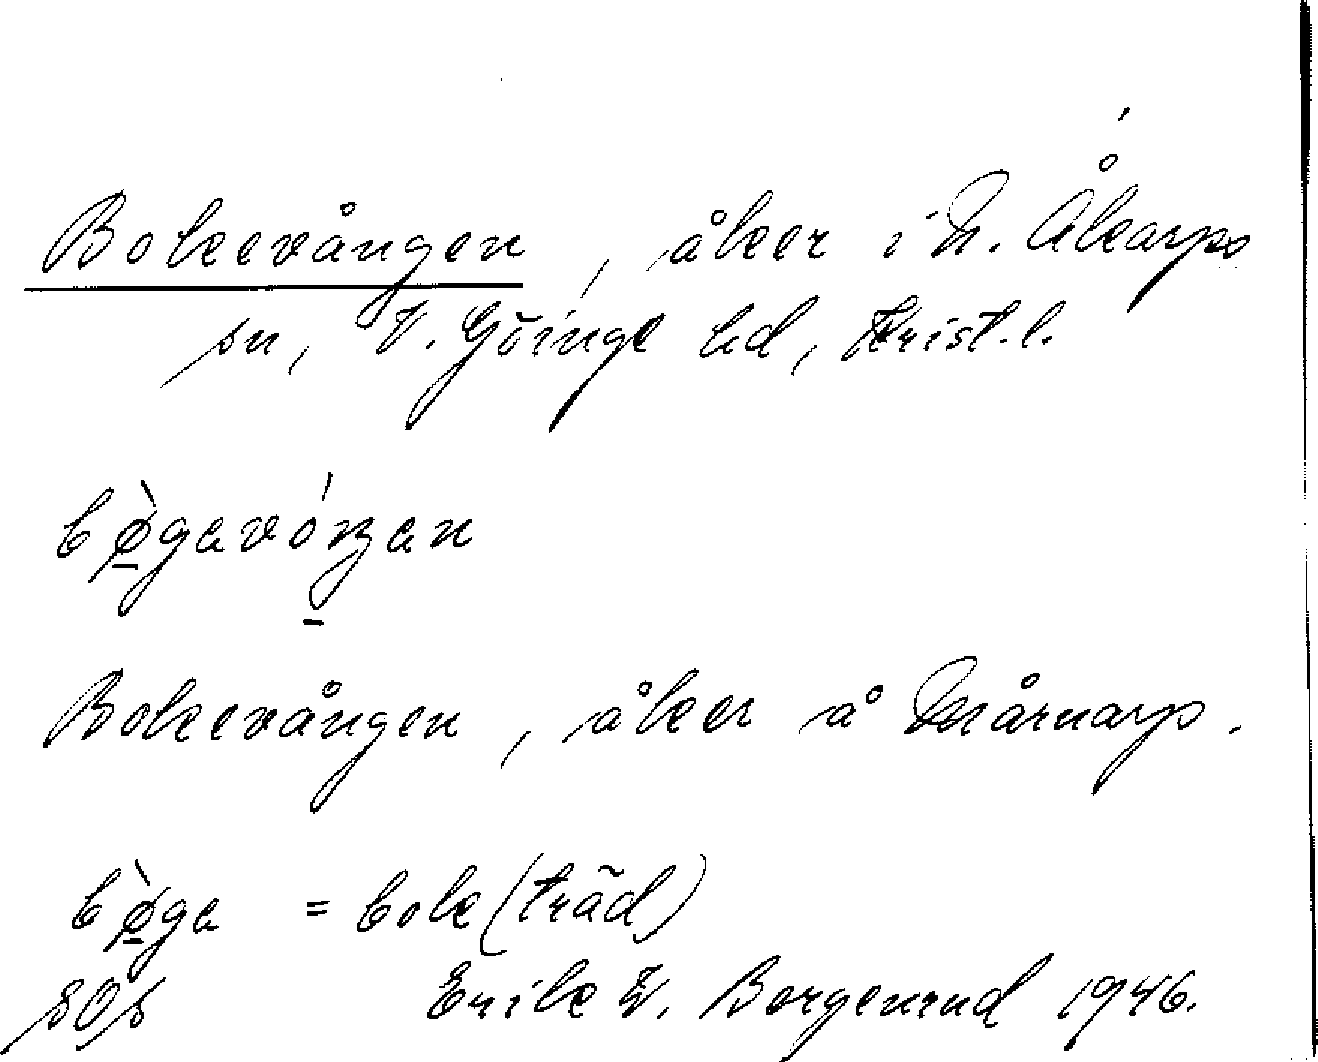 Bokevången, åker i N. Åkarps
sn, V. Göinge hd, Krist. l.
bø̀gavóŋan
Bokevången, åker å Mårnarp.
bø̀ga = bok (träd)
Erik W. Borgenrud 1946.